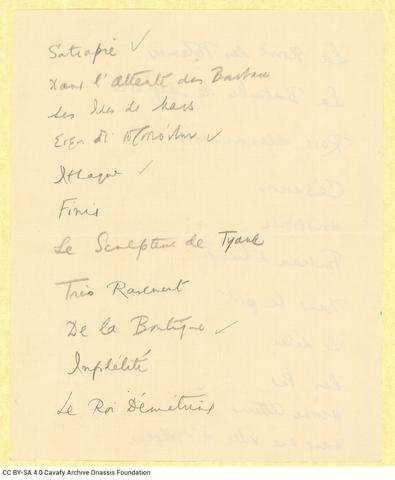 Satrapie ✓
Dans l'attente des Barbares
Les Ides de Mars
✓
Ithaque ✓
Finis
Le Sculpteur de Tyane
Très Rarement
De la Boutique ✓
Infidélité
Le Roi Démétrius
CC BY-SA 4.0 Cavafy Archive Onassis Foundation